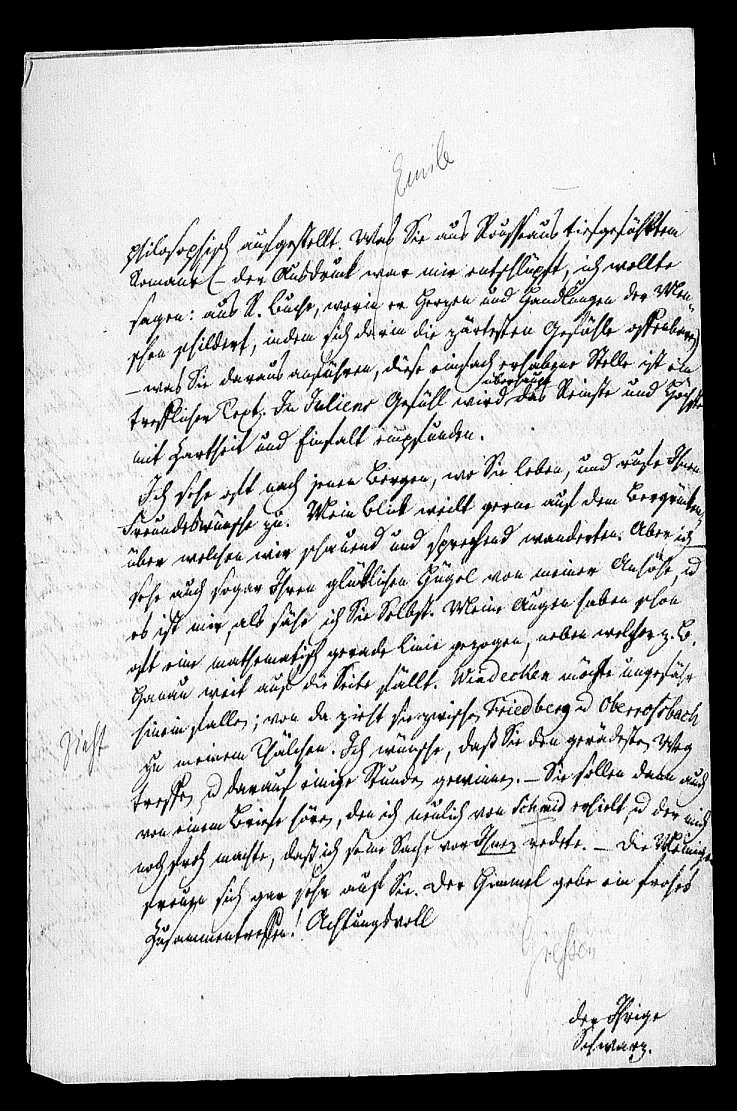 Emile
philosophisch aufgestellt. Was Sie aus Rousseaus tiefgefühltem
Romane (der Ausdruck war mir entschlüpft, ich wollte
sagen: aus R. Buche, worin er Herzen und Handlungen der Men-
schen schildert, indem sich darin die zärtesten Gefühle offenbaren)
– was Sie daraus anführen, diese einfach erhabene Stelle ist ein
trefflicher Text. In Juliens Gefühl wird überhaupt das Reinste und Höchste
mit Zartheit und Einfalt empfunden.
Ich sehe oft nach jenen Bergen, wo Sie leben, und rufe Ihnen
Freundeswünsche zu. Mein Blick weilt gerne auf dem Bergrücken,
über welchen wir schauend und sprechend wanderten. Aber ich
sehe auch sogar Ihren glücklichen Hügel von meiner Anhöhe, u
es ist mir, als sähe ich Sie Selbst. Meine Augen haben schon
oft eine mathematisch gerade Linie gezogen, neben welcher z. B.
Hanau weit auf die Seite fällt. Windecken möchte ungefähr
hinein fallen; von da zieht sie zwischen Friedberg u Oberrosbach
zu meinem Thälchen. Ich wünsche, daß Sie den geradesten Weg
treffen u darauf einige Stunden gewinnen. – Sie sollen dann auch
von einem Briefe hören, den ich neulich von Schmid erhielt, u der mich
noch froh machte, daß ich seine Sache vor Ihnen redete. – Die Meinigen
freuen sich gar sehr auf Sie. Der Himmel gebe ein frohes
Zusammentreffen! Achtungsvoll
der Ihrige
Schwarz.